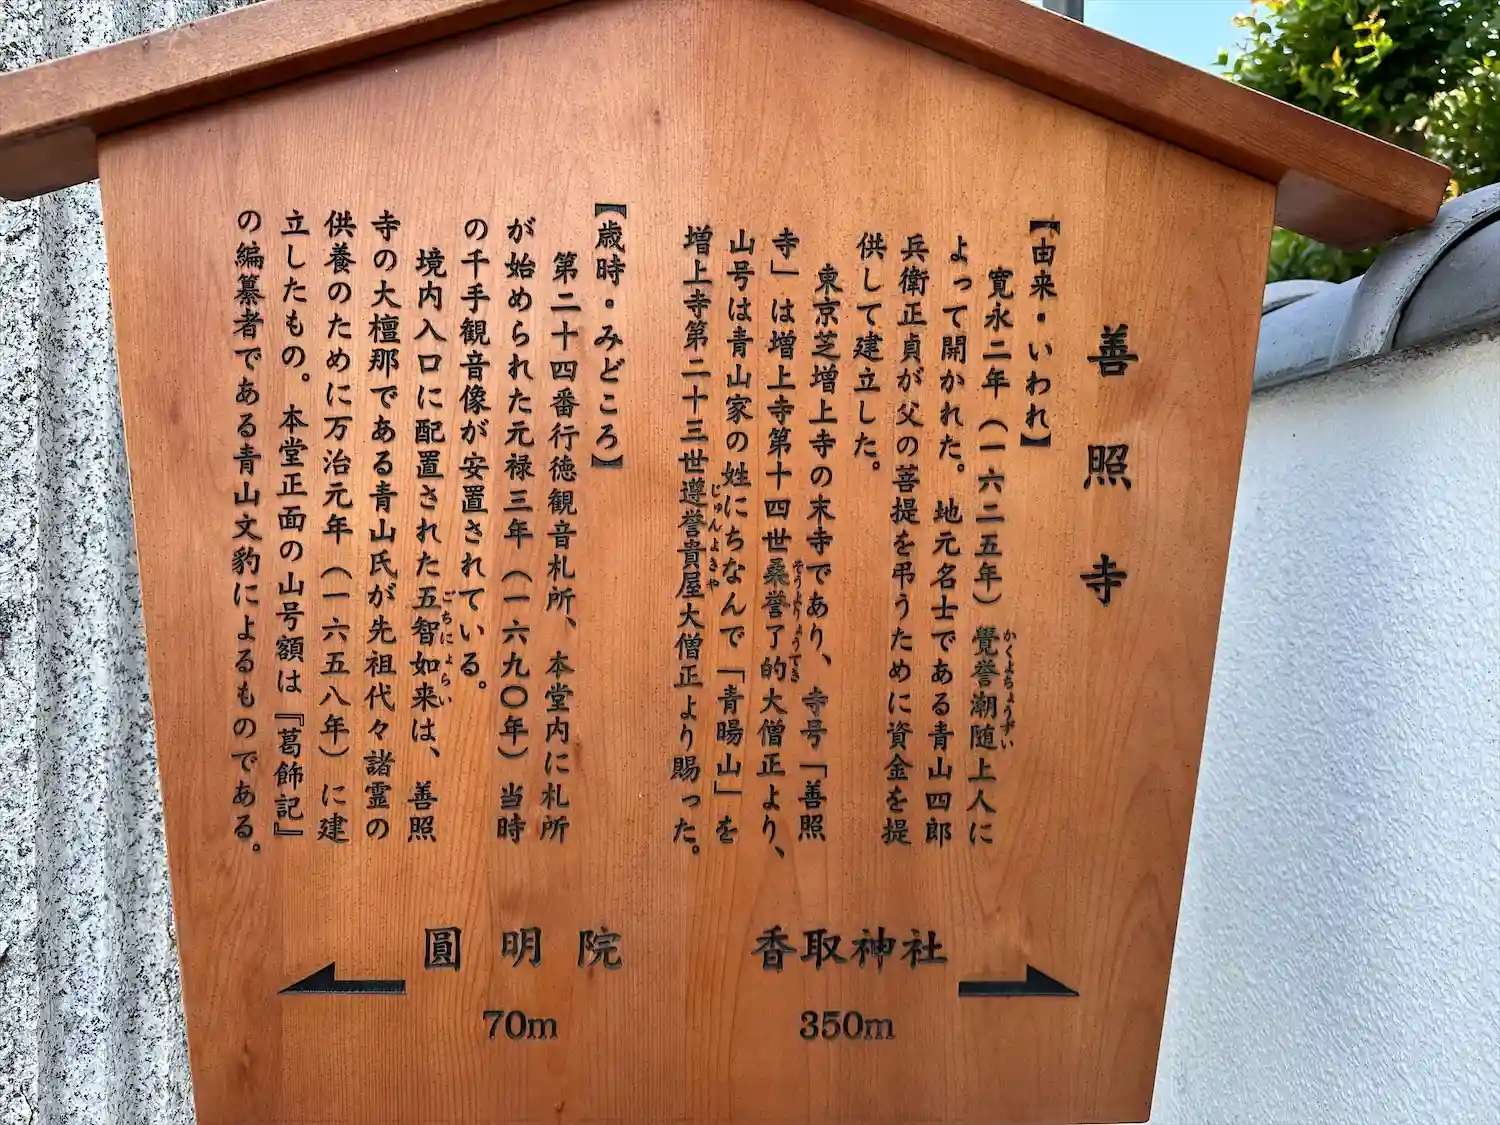 善照寺
【由来・いわれ】
寛永二年（一六二五年）覺誉潮随上人に
かくよちょうずい
よって開かれた。地元名士である青山四郎
兵衛正貞が父の菩提を弔うために資金を提
供して建立した。
東京芝増上寺の末寺であり、寺号「善照
寺」は増上寺第十四世桑誉了的大僧正より、
そうよりょうてき
山号は青山家の姓にちなんで「青暘山」を
増上寺第二十三世遵誉貴屋大僧正より賜った。
じゅんよきや
【歳時・みどころ】
第二十四番行徳観音札所、本堂内に札所
が始められた元禄三年（一六九〇年）当時
の千手観音像が安置されている。
境内入口に配置された五智如来は、善照
ごちにょらい
寺の大檀那である青山氏が先祖代々諸霊の
供養のために万治元年（一六五八年）に建
立したもの。本堂正面の山号額は『葛飾記』
の編纂者である青山文豹によるものである。
香取神社
350m
圓明院
70m